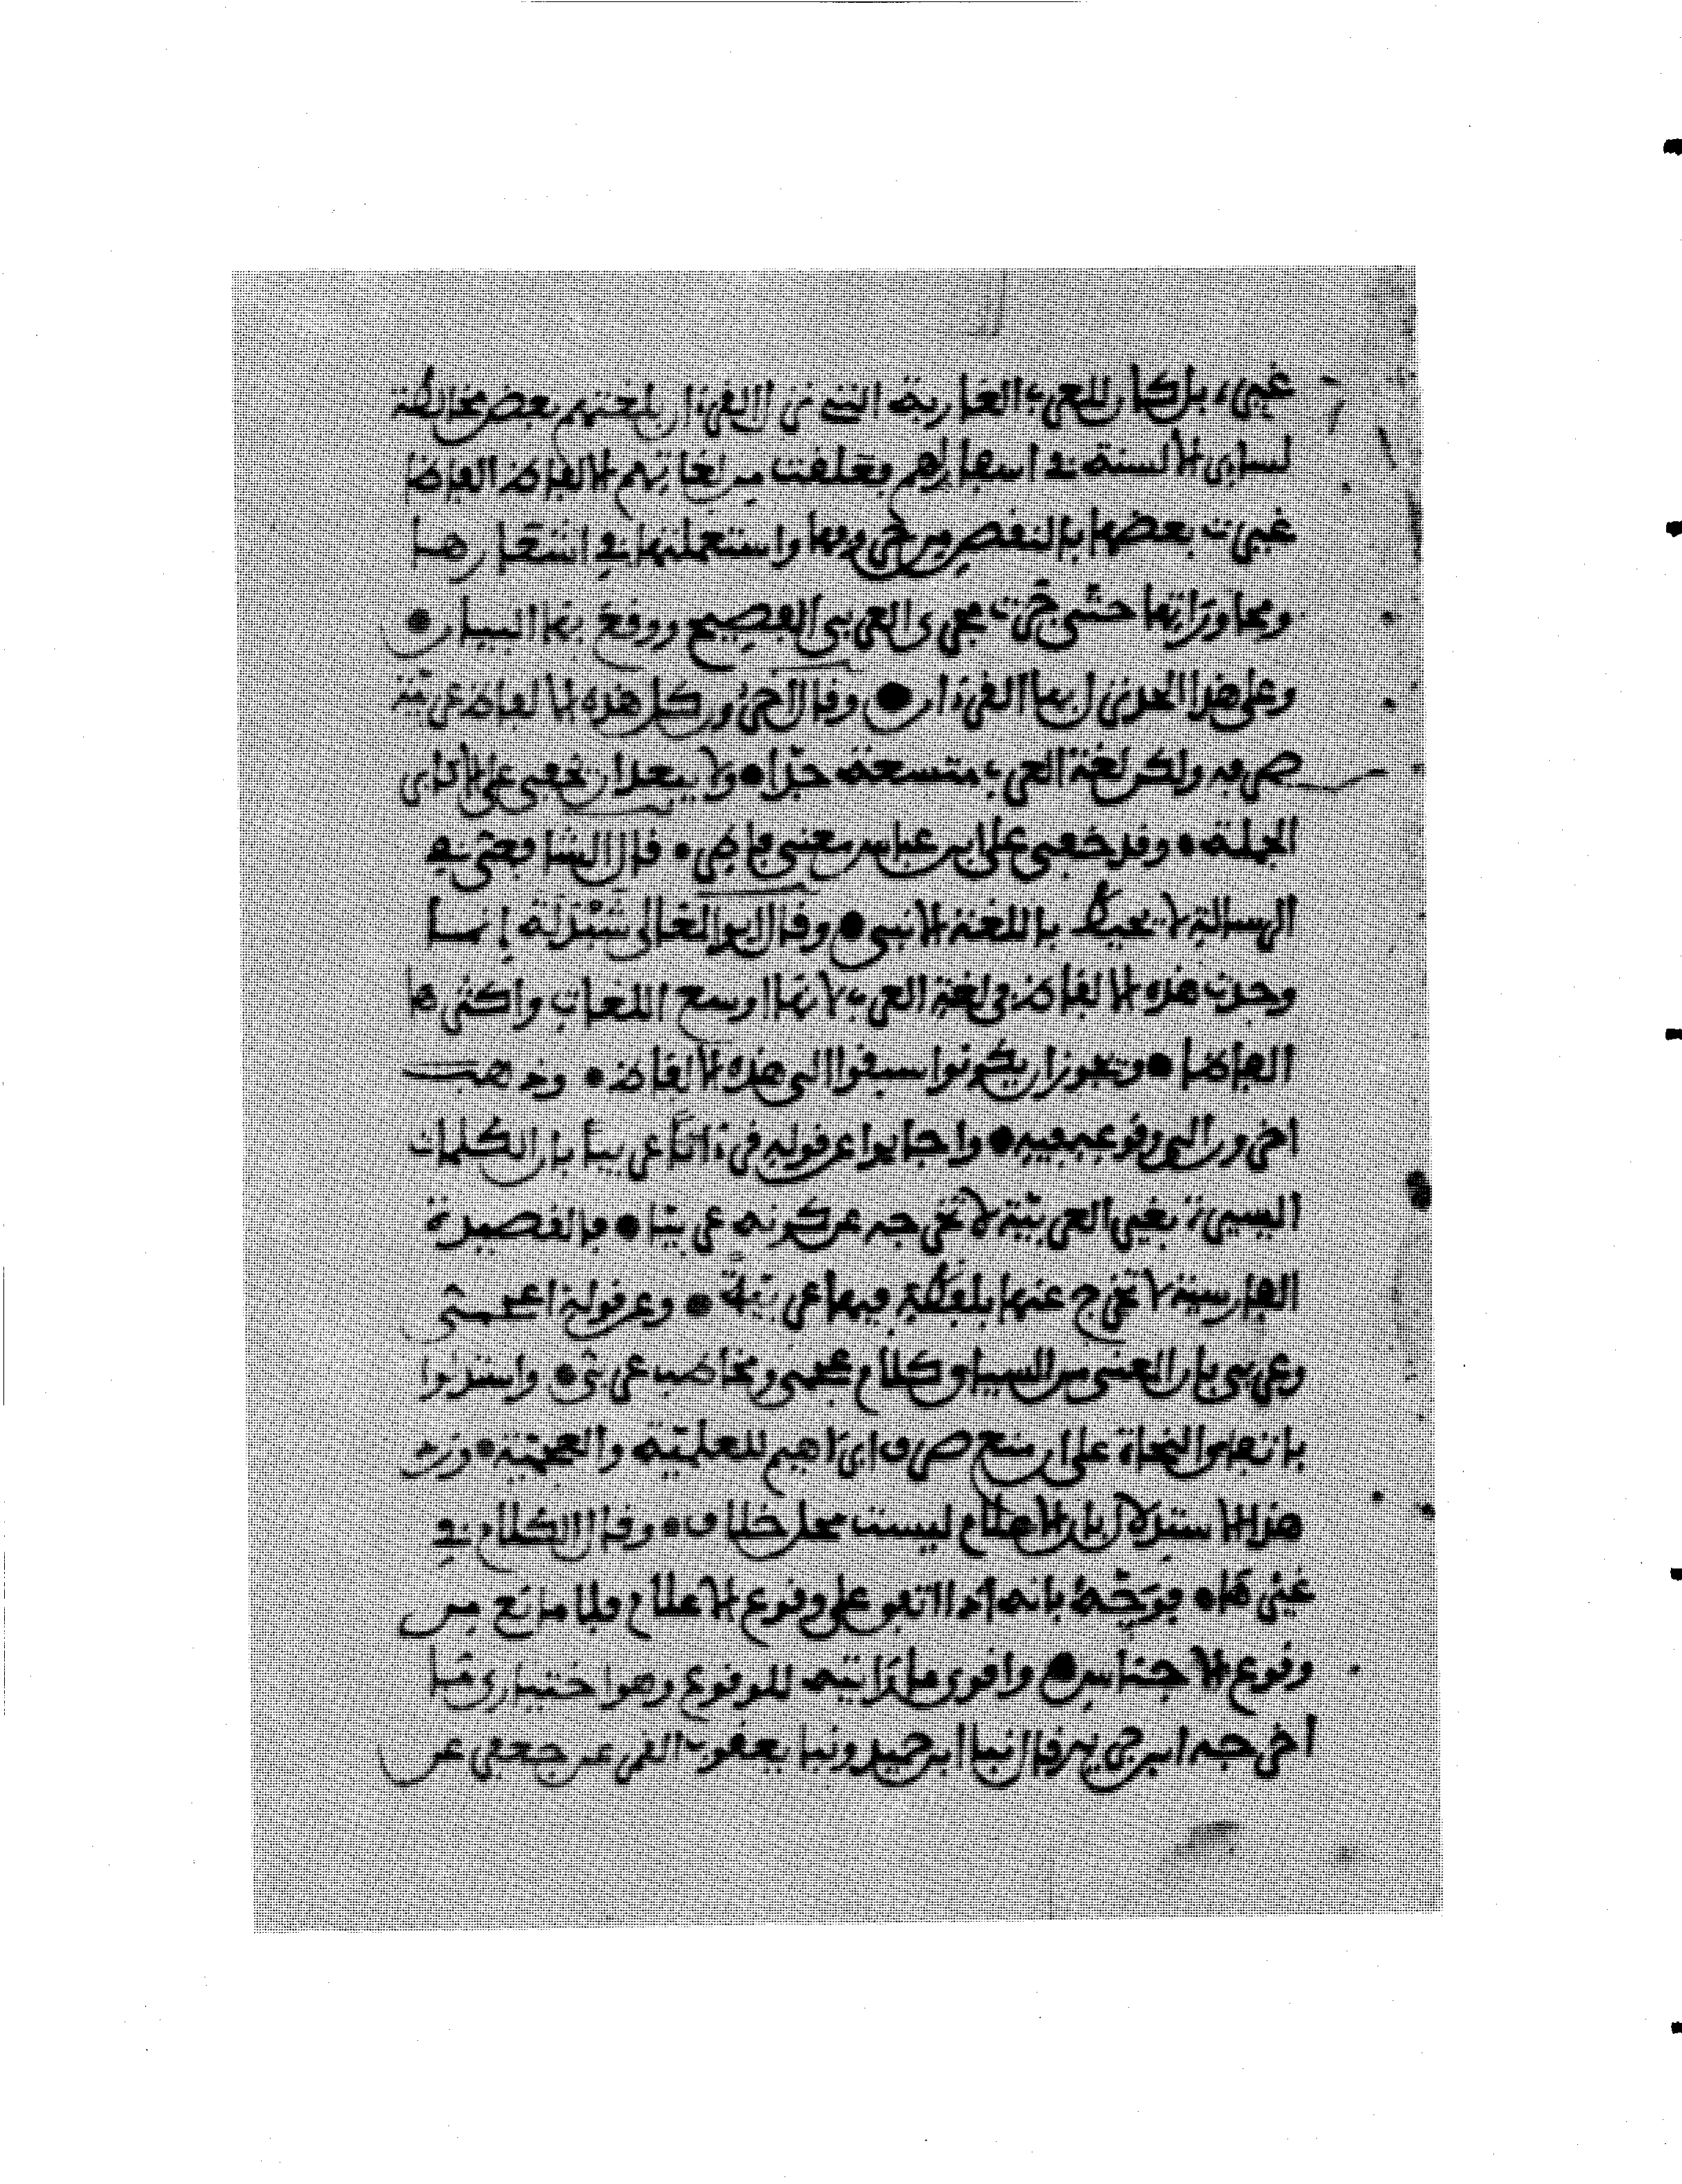 غيره بل كان للعرب العاربة التي نزل القرءان بلغتهم بعض مخالطة
لسائر الالسنة في اسفارهم فعلقت من لغاتهم الالفاظ الفاظا
غيرت بعضها بالنقص من حروفها واستعملتها في اشعارها
ومحاوراتها حتى جرت مجرى العربي الفصيح ووقع بها البيان
وعلى هذا الحد نزل بها القرءان وقال ءاخرون كل هذه الالفاظ عربية
صرفه ولكن لغة العرب متسعة جدا ولا يبعد ان تخفى على الاكابر
الجملة وقد خفي على ابن عباس معنى فاطر قال الشافعي في
الرسالة لا يحيط باللغة الا نبي وقال ابو المعالي شيذلة إنما
وجدت هذه الالفاظ في لغة العرب لانها اوسع اللغات واكثرها
الفاظا ويجوز ان يكونوا سبقوا الى هذه الالفاظ وذهب
اخرون الى وقوعه فيه واجابوا عن قوله قرءانا عربيا بان الكلمات
اليسيرة بغير العربية لا تخرجه عن كونه عربيا فالقصيدة
الفارسية لا تخرج عنها بلفظة فيها عربية وعن قوله اعجمي
وعربي بان المعنى من السياق كلام عجمي ومخاطب عربي واستدلوا
باتفاق النحاة على ان منع صرف ابراهيم للعلمية والعجمية ورد
هذا الاستدلال بان الاعلام ليست محل خلاف وقال الكلام في
غيرها فوجه بانه اذا اتفق على وقوع الاعلام فلا مانع من
وقوع الاجناس واقوى ما رايته للوقوع وهو اختياري ما
اخرجه ابن جرير قال نبا ابن حميد ونبا يعقوب القمي عن جعفر عن